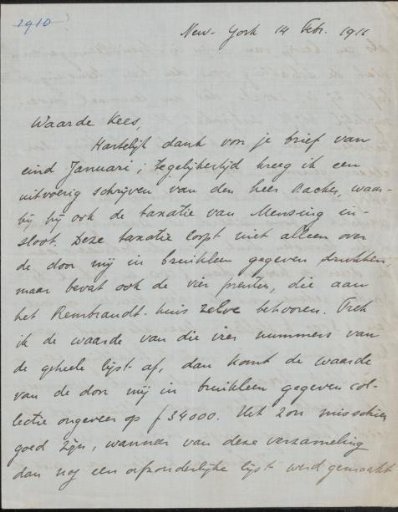 1910
New-York 14 Febr. 1911
Waarde Kees,
Hartelijk dank voor je brief van
eind Januari; tegelijkertijd kreeg ik een
uitvoerig schrijven van den heer waar-
bij hij ook de taxatie van Mensing in-
sloot. Deze taxatie loopt niet alleen over
de door mij in bruikleen gegeven drukken
maar bevat ook de vier prenten, die aan
het Rembrandt-huis zelve behooren. Trek
ik de waarde van die vier nummers van
de geheele lijst af, dan komt de waarde
van de door mij in bruikleen gegeven col-
lectie ongeveer op f 34000. Het zou misschien
goed zijn, wanneer van deze verzameling
dan nog een afzonderlijke lijst werd gemaakt